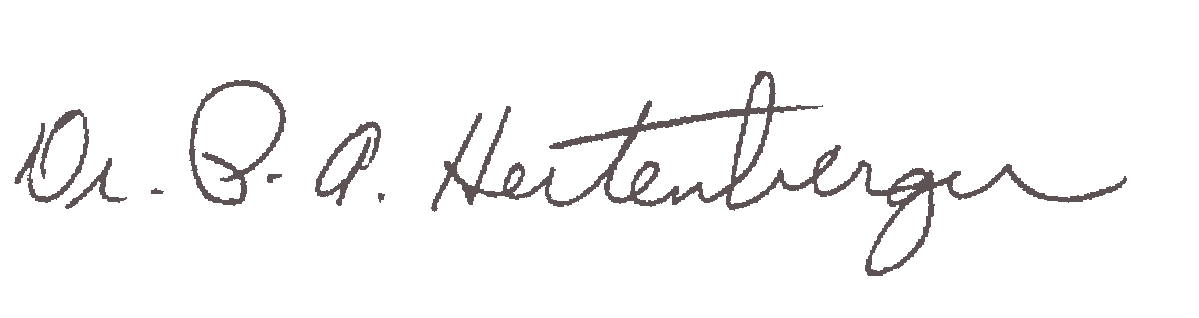 Dr. B. A. Hertenberger